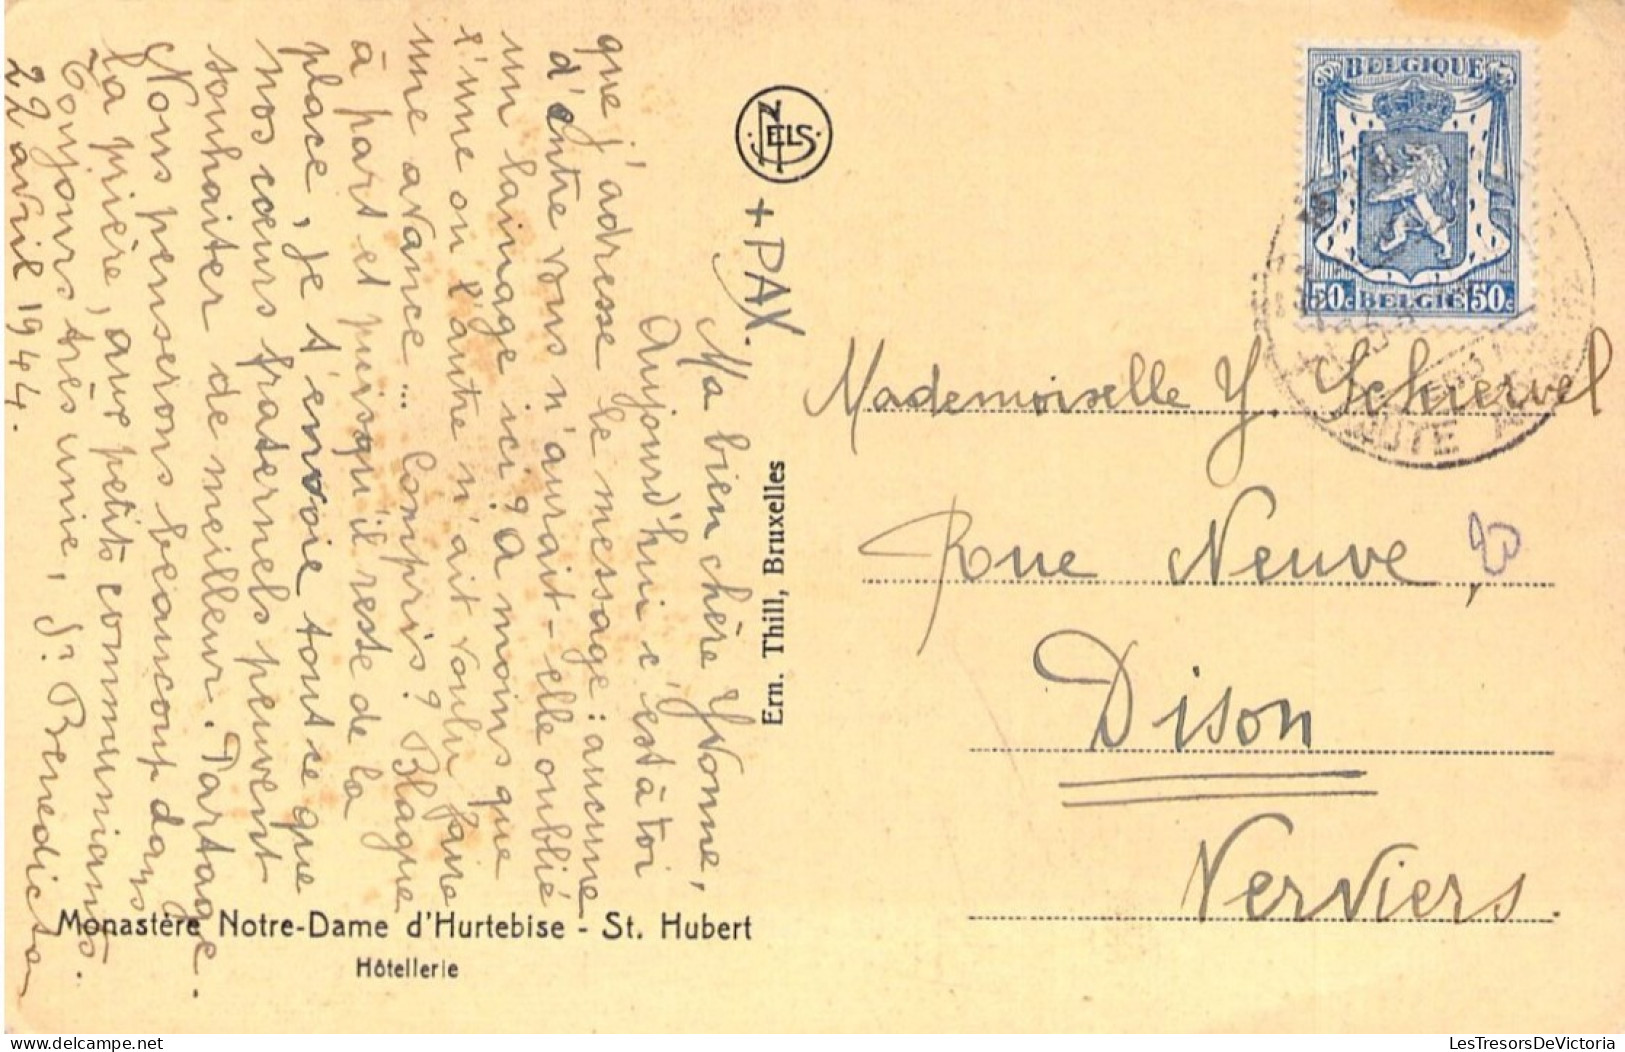 + PAX.
Ma bien chère Yvonne,
Aujourd'hui c'est à toi
que j'adresse le message : aucune
d'entre vous n'aurait-elle oublié
un lainage ici ? A moins que
l'une ou l'autre n'ait voulu faire
une avance ... Compris ? Blague
à part et puisqu'il reste de la
place, je t'envoie tout ce que
nos cœurs fraternels peuvent
souhaiter de meilleur. Partage.
Nous penserons beaucoup dans
la prière, aux petits communiants.
Toujours très unie, Sr. Benedicta
22 avril 1944.
NELS
Ern. Thill, Bruxelles
Monastère Notre-Dame d'Hurtebise - St. Hubert
Hôtellerie
BELGIQUE
50c BELGIË 50c
Mademoiselle Y. Schuervel
Rue Neuve,
Dison
Verviers.
delcampe.net
LesTresorsDeVictoria